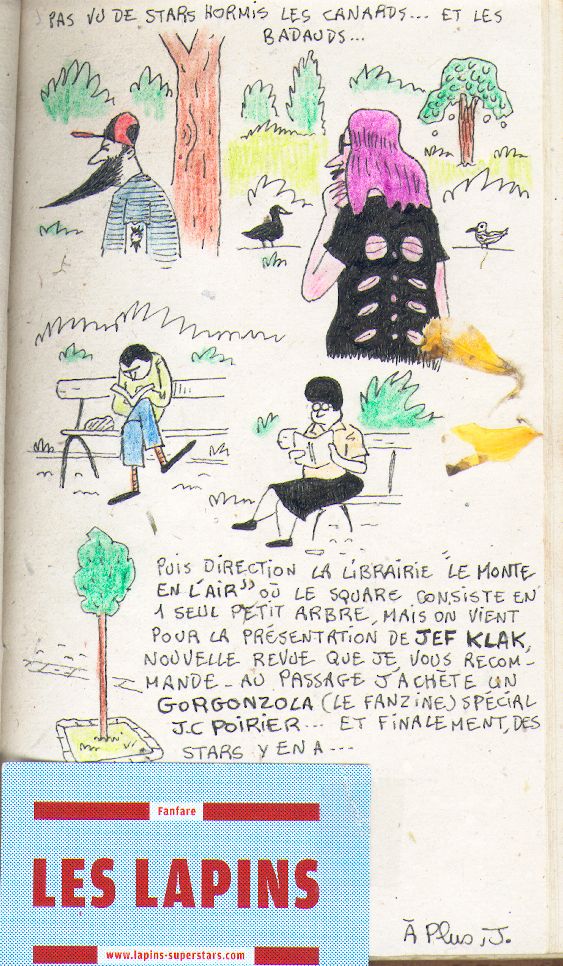 PAS VU DE STARS HORMIS LES CANARDS... ET LES
BADAUDS...
PUIS DIRECTION LA LIBRAIRIE "LE MONTE
EN L'AIR" OÙ LE SQUARE CONSISTE EN
1 SEUL PETIT ARBRE, MAIS ON VIENT
POUR LA PRÉSENTATION DE JEF KLAK,
NOUVELLE REVUE QUE JE VOUS RECOM-
MANDE - AU PASSAGE J'ACHÈTE UN
GORGONZOLA (LE FANZINE) SPÉCIAL
J.C POIRIER... ET FINALEMENT, DES
STARS Y EN A...
Fanfare
LES LAPINS
www.lapins-superstars.com
À Plus, J.